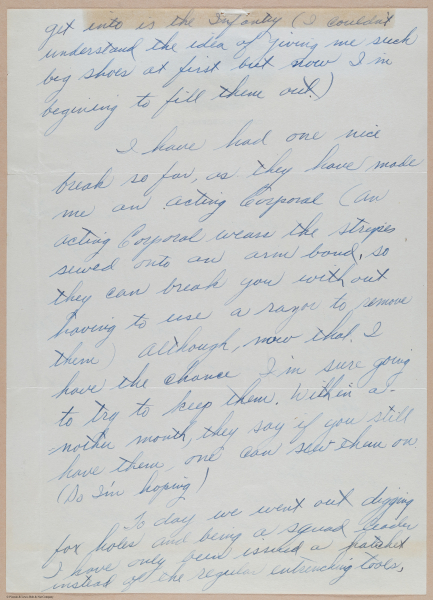 get into is the Infantry (I couldn't
understand the idea of giving me such
big shoes at first but now I'm
begining to fill them out.)
I have had one nice
break so far, as they have made
me an acting Corporal (an
acting Corporal wears the stripes
sewed onto an arm band, so
they can break you without
having to use a razor to remove
them) although, now that I
have the chance I'm sure going
to try to keep them. Within a-
nother month, they say if you still
have them, one can sew them on
(So I'm hoping)!
To day we went out digging
fox holes and being a squad leader
I have only been issued a hatchet
instead of the regular entrenching tools,